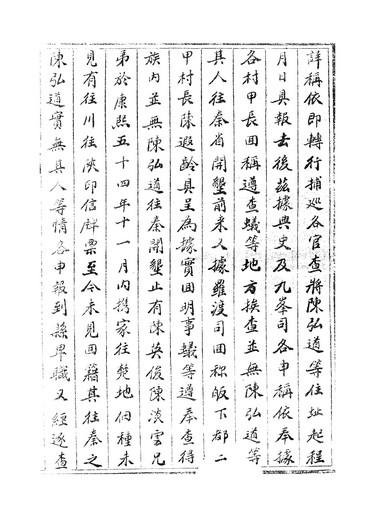 詳稱依即轉行捕巡各官查將陳弘道等住址起程
月日具報去後茲據典史及九峯司各申稱依奉據
各村甲長囬稱遵查蟻等地方挨查並無陳弘道等
其人往秦省開墾前来又據羅渡司囬称皈下都二
甲村長陳遐齡具呈為據實囬明事蟻等遵奉查得
族内並無陳弘道往秦開墾止有陳英俊陳淡雲兄
弟於康熙五十四年十一月内携家往楚地佃種未
見有往川往陝印信牌票至今未見囬籍其往秦之
陳弘道實無其人等情各申報到縣卑職又經逐查